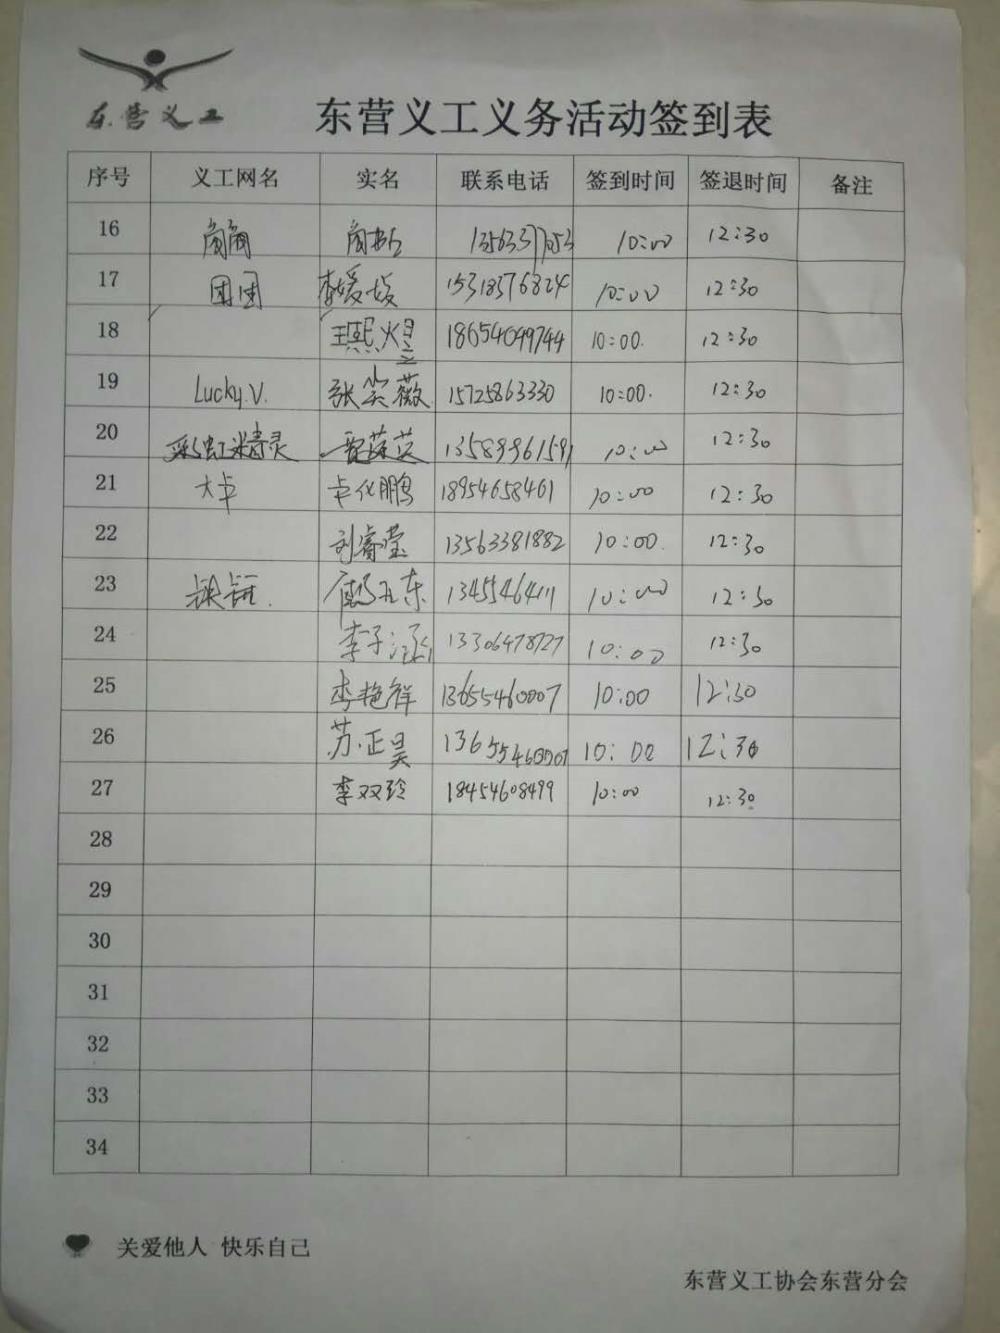 东营义工
东营义工义务活动签到表
序号 义工网名 实名 联系电话 签到时间 签退时间 备注
16 10:00 12:30
17 团团 李媛媛 15318376824 10:00 12:30
18 王熙煜 18654049744 10:00. 12:30
19 Lucky.V. 张奕薇 15725863330 10:00. 12:30
20 彩虹精灵 10:00 12:30
21 大卓 卓化鹏 18954658461 10:00 12:30
22 刘睿莹 13563381882 10:00. 12:30
23 10:00 12:30
24 李子涵 13306478727 10:00 12:30
25 李艳祥 13655460007 10:00 12:30
26 苏正昊 13655460007 10:00 12:30
27 李双玲 18454608499 10:00 12:30
28
29
30
31
32
33
34
关爱他人 快乐自己
东营义工协会东营分会